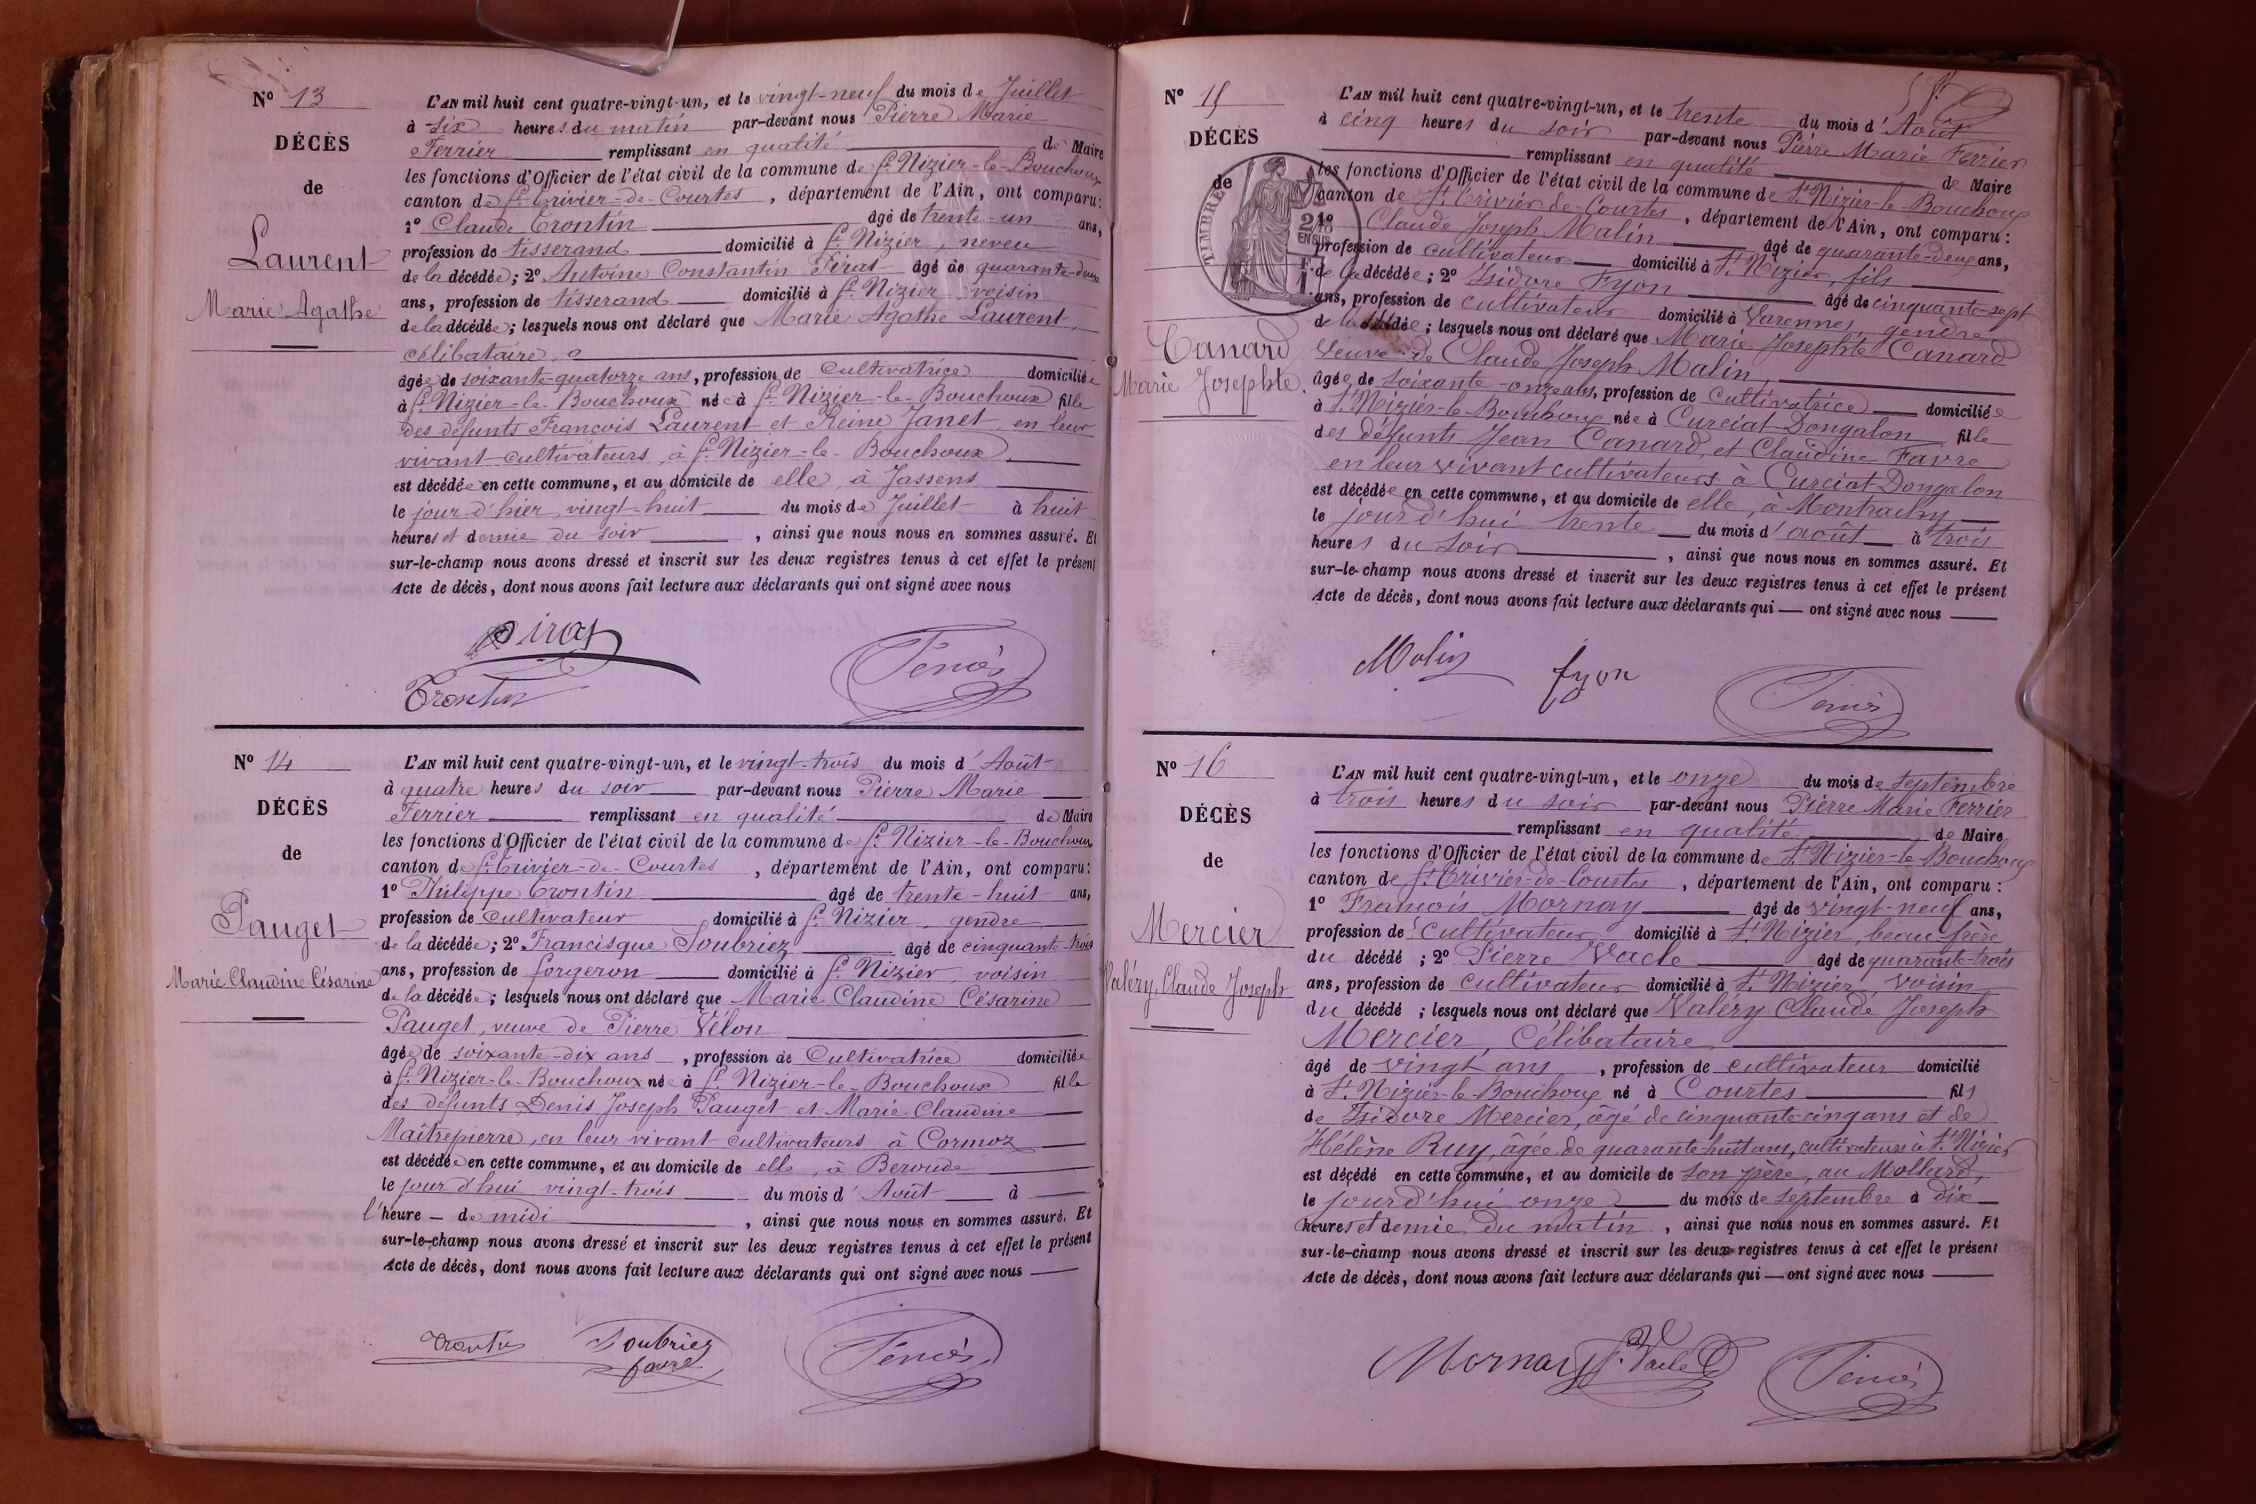 Nº 13
DÉCÈS
de
Laurent
Marie Agathe
L'AN mil huit cent quatre-vingt-un, et le vingt-neuf du mois de Juillet
à six heures du matin par-devant nous Pierre Marie
Ferrier remplissant en qualité de Maire
les fonctions d'Officier de l'état civil de la commune de St Nizier-le-Bouchoux
canton de St Trivier-de-Courtes, département de l'Ain, ont comparu:
1º Claude Trontin âgé de trente-un ans,
profession de tisserand domicilié à St Nizier, neveu
de la décédée; 2º Antoine Constantin Piras âgé de quarante-deux
ans, profession de tisserand domicilié à St Nizier voisin
de la décédée; lesquels nous ont déclaré que Marie Agathe Laurent,
célibataire
âgée de soixante-quatorze ans, profession de Cultivatrice domiciliée
à St Nizier-le-Bouchoux née à St Nizier-le-Bouchoux fille
des défunts François Laurent et Reine Janet en leur
vivant cultivateurs, à St Nizier-le-Bouchoux.
est décédée en cette commune, et au domicile de elle, à Jassens
le jour d'hier, vingt-huit du mois de Juillet à huit
heures et demie du soir, ainsi que nous nous en sommes assuré. Et
sur-le-champ nous avons dressé et inscrit sur les deux registres tenus à cet effet le présent
Acte de décès, dont nous avons fait lecture aux déclarants qui ont signé avec nous
Piras
Trontin
Nº 14
DÉCÈS
de
Pauget
Marie Claudine Césarine
L'AN mil huit cent quatre-vingt-un, et le vingt-trois du mois d'Août
à quatre heures du soir par-devant nous Pierre Marie
Ferrier remplissant en qualité de Maire
les fonctions d'Officier de l'état civil de la commune de St Nizier-le-Bouchoux
canton de St Trivier-de-Courtes, département de l'Ain, ont comparu:
1º Philippe Trontin âgé de trente-huit ans,
profession de cultivateur domicilié à St Nizier, gendre
de la décédée; 2º Francisque Soubriez âgé de cinquante-trois
ans, profession de forgeron domicilié à St Nizier, voisin
de la décédée; lesquels nous ont déclaré que Marie Claudine Césarine
Pauget, veuve de Pierre Vélon
âgée de soixante-dix ans, profession de Cultivatrice domiciliée
à St Nizier-le-Bouchoux née à St Nizier-le-Bouchoux fille
des défunts Denis Joseph Pauget et Marie Claudine
Maîtrepierre, en leur vivant cultivateurs à Cormoz
est décédée en cette commune, et au domicile de elle, à Beroude
le jour d'hui vingt-trois du mois d'Août à
l'heure de midi, ainsi que nous nous en sommes assuré. Et
sur-le-champ nous avons dressé et inscrit sur les deux registres tenus à cet effet le présent
Acte de décès, dont nous avons fait lecture aux déclarants qui ont signé avec nous
Trontin Soubriez
favre
Nº 15
DÉCÈS
de
TIMBRE
Canard
Marie Josephte
L'AN mil huit cent quatre-vingt-un, et le trente du mois d'Août
à cinq heures du soir par-devant nous Pierre Marie Ferrier
remplissant en qualité de Maire
les fonctions d'Officier de l'état civil de la commune de St Nizier-le-Bouchoux
canton de St Trivier-de-Courtes, département de l'Ain, ont comparu:
Claude Joseph Malin âgé de quarante-deux ans,
profession de cultivateur domicilié à St Nizier, fils
de la décédée; 2º Isidore Fyon âgé de cinquante-sept
ans, profession de cultivateur domicilié à Varennes, gendre
de la décédée; lesquels nous ont déclaré que Marie Josephte Canard
Veuve de Claude Joseph Malin,
âgée de soixante-onze ans, profession de Cultivatrice domiciliée
à St Nizier-le-Bouchoux née à Curciat-Dongalon fille
des défunts Jean Canard, et Claudine Favre
en leur vivant cultivateurs à Curciat-Dongalon
est décédée en cette commune, et au domicile de elle, à Montrachy
le jour d'hui trente du mois d'août à trois
heures du soir, ainsi que nous nous en sommes assuré. Et
sur-le-champ nous avons dressé et inscrit sur les deux registres tenus à cet effet le présent
Acte de décès, dont nous avons fait lecture aux déclarants qui ont signé avec nous
Molin fyon
Nº 16
DÉCÈS
de
Mercier
Valéry Claude Joseph
L'AN mil huit cent quatre-vingt-un, et le onze du mois de septembre
à trois heures du soir par-devant nous Pierre Marie Ferrier
remplissant en qualité de Maire
les fonctions d'Officier de l'état civil de la commune de St Nizier-le-Bouchoux
canton de St Trivier-de-Courtes, département de l'Ain, ont comparu:
1º François Mornay âgé de vingt-neuf ans,
profession de cultivateur domicilié à St Nizier, beau-frère
du décédé; 2º Pierre Vacle âgé de quarante-trois
ans, profession de cultivateur domicilié à St Nizier, voisin
du décédé; lesquels nous ont déclaré que Valéry Claude Joseph
Mercier, Célibataire
âgé de vingt ans, profession de cultivateur domicilié
à St Nizier-le-Bouchoux né à Courtes fils
de Isidore Mercier, âgé de cinquante-cinq ans et de
Hélène Ruy, âgée de quarante-huit ans, cultivateurs à St Nizier
est décédé en cette commune, et au domicile de son père, au Mollard,
le jour d'hui onze du mois de septembre à dix
heures et demie du matin, ainsi que nous nous en sommes assuré. Et
sur-le-champ nous avons dressé et inscrit sur les deux registres tenus à cet effet le présent
Acte de décès, dont nous avons fait lecture aux déclarants qui ont signé avec nous
Mornay P. Vacle